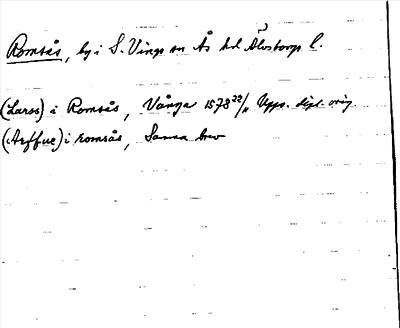 Romsås, by i S. Vings sn Ås hd Älvsborgs l.
(Laros) i Romsås, Vånga 1573 22/11 Upps. dipl. orig
(Arffue) i romsås, Samma brev